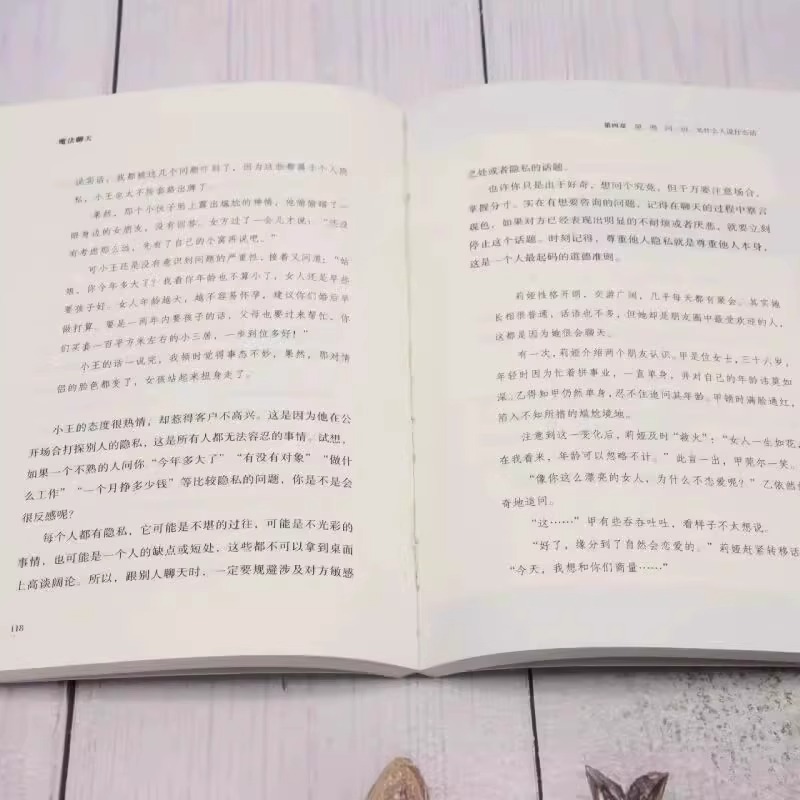 魔法聊天
说实话，我都被这几个问题吓到了，因为这些都属于个人隐
私，小王也太不按套路出牌了！
果然，那个小伙子马上露出尴尬的神情，他偷偷瞄了一
眼身边的女朋友，没有回答。女方过了一会儿才说：“还没
有考虑那么远，先有了自己的小窝再说吧。”
可小王还是没有意识到问题的严重性，接着又问道：“姑
娘，你今年多大了？我看你年龄也不算小了，女人还是早些
要孩子好。女人年龄越大，越不容易怀孕，建议你们婚后早
做打算。要是一两年内要孩子的话，父母也要过来帮忙，你
们买套一百平方米左右的小三居，一步到位多好！”
小王的话一说完，我顿时觉得事态不妙，果然，那对情
侣的脸色都变了，女孩站起来扭身走了。
小王的态度很热情，却惹得客户不高兴。这是因为他在公
开场合打探别人的隐私，这是所有人都无法容忍的事情。试想，
如果一个不熟的人问你“今年多大了”“有没有对象”“做什
么工作”“一个月挣多少钱”等比较隐私的问题，你是不是会
很反感呢？
每个人都有隐私，它可能是不堪的过往，可能是不光彩的
事情，也可能是一个人的缺点或短处，这些都不可以拿到桌面
上高谈阔论。所以，跟别人聊天时，一定要规避涉及对方敏感
118
第四章 望 闻 问 切，见什么人说什么话
之处或者隐私的话题。
也许你只是出于好奇，想问个究竟，但千万要注意场合，
掌握分寸。实在有想要咨询的问题，记得在聊天的过程中察言
观色，如果对方已经表现出明显的不耐烦或者厌恶，就要立刻
停止这个话题。时刻记得，尊重他人隐私就是尊重他人本身，
这是一个人最起码的道德准则。
莉娅性格开朗，交游广阔，几乎每天都有聚会。其实她
长相很普通，话语也不多，但她却是朋友圈中最受欢迎的人，
这都是因为她很会聊天。
有一次，莉娅介绍两个朋友认识。甲是位女士，三十六岁，
年轻时因为忙着拼事业，一直单身，并对自己的年龄讳莫如
深。乙得知甲仍然单身，忍不住追问其年龄。甲顿时满脸通红，
陷入不知所措的尴尬境地。
注意到这一变化后，莉娅及时“救火”：“女人一生如花，
在我看来，年龄可以忽略不计。”此言一出，甲莞尔一笑。
“像你这么漂亮的女人，为什么不恋爱呢？”乙依然
奇地追问。
“这……”甲有些吞吞吐吐，看样子不太想说。
“好了，缘分到了自然会恋爱的。”莉娅赶紧转移话
“今天，我想和你们商量……”